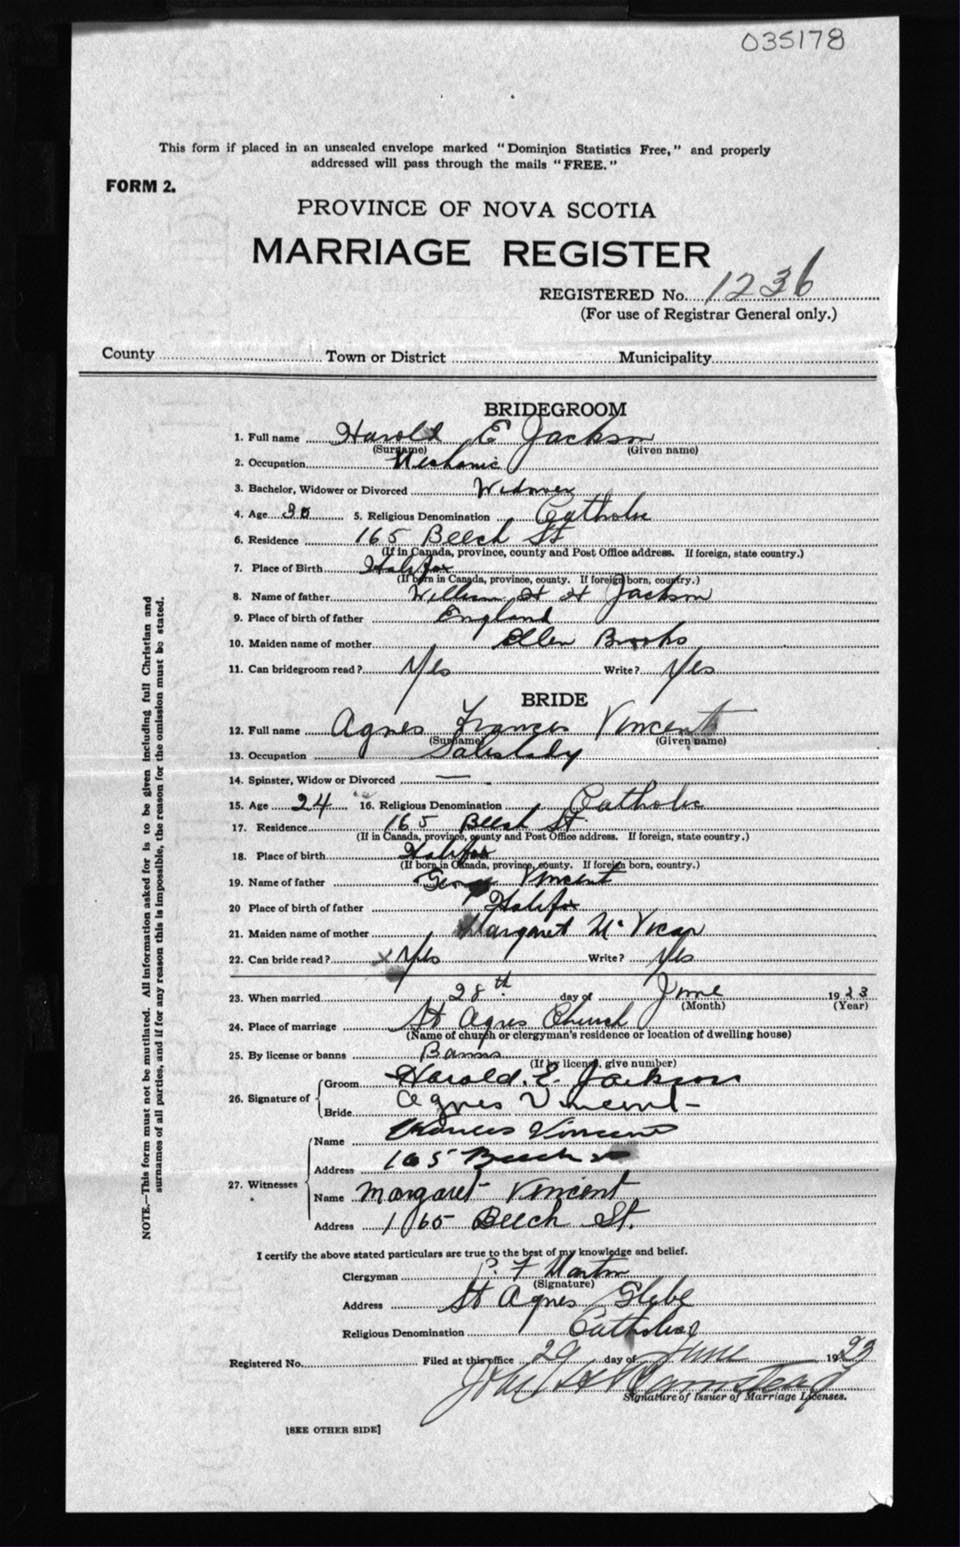 035178
This form if placed in an unsealed envelope marked "Dominion Statistics Free," and properly
addressed will pass through the mails "FREE."
FORM 2.
PROVINCE OF NOVA SCOTIA
MARRIAGE REGISTER
REGISTERED No. 1236
(For use of Registrar General only.)
County Town or District Municipality
BRIDEGROOM
1. Full name Harold E Jackson
(Surname) (Given name)
2. Occupation Mechanic
3. Bachelor, Widower or Divorced Widower
4. Age 30 5. Religious Denomination Catholic
6. Residence 165 Beech St
(If in Canada, province, county and Post Office address. If foreign, state country.)
7. Place of Birth Halifax
(If born in Canada, province, county. If foreign born, country.)
8. Name of father William H H Jackson
9. Place of birth of father England
10. Maiden name of mother Ellen Brooks
11. Can bridegroom read? Yes Write? Yes
BRIDE
12. Full name Agnes Frances Vincent
(Surname) (Given name)
13. Occupation Saleslady
14. Spinster, Widow or Divorced —
15. Age 24 16. Religious Denomination Catholic
17. Residence 165 Beech St
(If in Canada, province, county and Post Office address. If foreign, state country.)
18. Place of birth Halifax
(If born in Canada, province, county. If foreign born, country.)
19. Name of father George Vincent
20 Place of birth of father Halifax
21. Maiden name of mother Margaret McVicar
22. Can bride read? x Yes Write? Yes
23. When married 28th day of June 1923
(Month) (Year)
24. Place of marriage St Agnes Church
(Name of church or clergyman's residence or location of dwelling house)
25. By license or banns Banns
(If by license, give number)
26. Signature of Groom Harold. E. Jackson
Bride Agnes Vincent
27. Witnesses
Name Vincent
Address 165 Beech St
Name Margaret Vincent
Address 165 Beech St.
I certify the above stated particulars are true to the best of my knowledge and belief.
Clergyman P. F Martin
(Signature)
Address St Agnes Glebe
Religious Denomination Catholic
Registered No. Filed at this office 29 day of June 1923
Signature of Issuer of Marriage Licenses.
[SEE OTHER SIDE]
NOTE.—This form must not be mutilated. All information asked for is to be given including full Christian and
surnames of all parties, and if for any reason this is impossible, the reason for the omission must be stated.